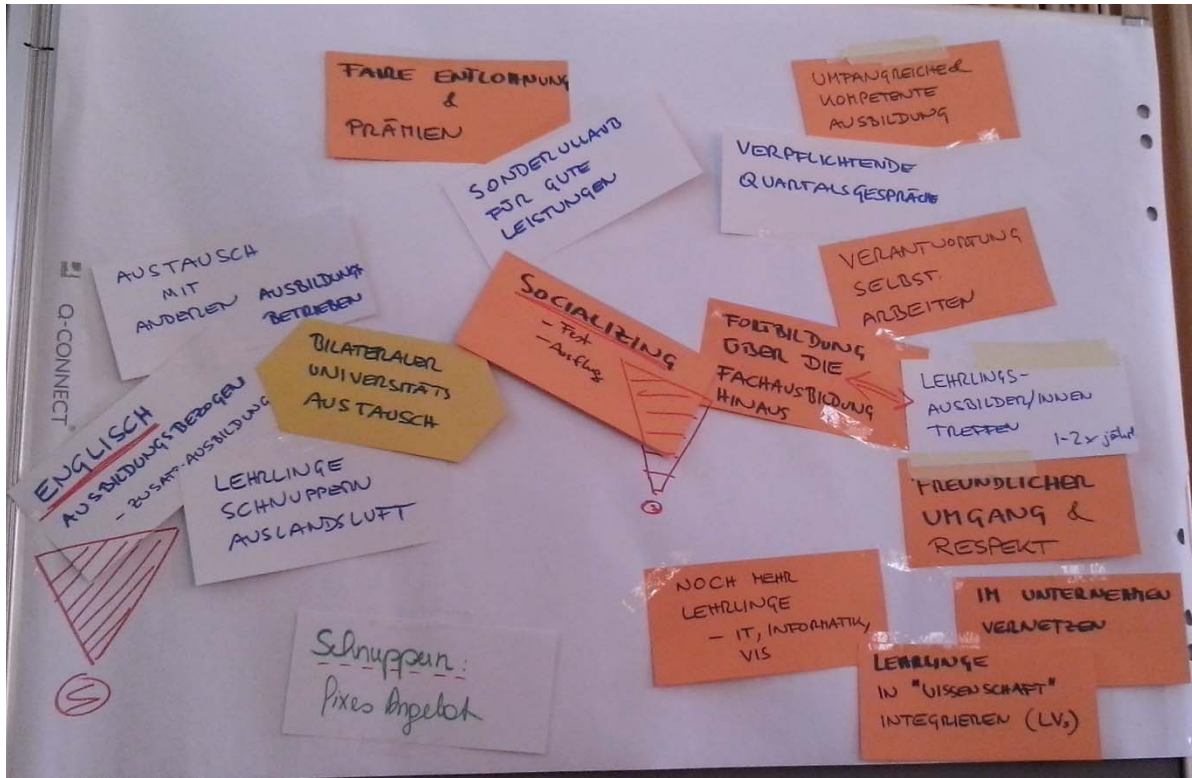 FAIRE ENTLOHNUNG
&
PRÄMIEN
UMFANGREICHE &
KOMPETENTE
AUSBILDUNG
SONDERURLAUB
FÜR GUTE
LEISTUNGEN
VERPFLICHTENDE
QUARTALSGESPRÄCHE
AUSTAUSCH
MIT
ANDEREN AUSBILDUNGS
BETRIEBEN
VERANTWORTUNG
SELBST.
ARBEITEN
SOCIALIZING
- Fest
- Ausflug
FORTBILDUNG
ÜBER DIE
FACHAUSBILDUNG
HINAUS
BILATERALER
UNIVERSITÄTS
AUSTAUSCH
LEHRLINGS-
AUSBILDER/INNEN
TREFFEN
1-2x jährl
ENGLISCH
AUSBILDUNGSBEZOGEN
- ZUSATZ-AUSBILDUNG
LEHRLINGE
SCHNUPPERN
AUSLANDSLUFT
FREUNDLICHER
UMGANG &
RESPEKT
3
NOCH MEHR
LEHRLINGE
- IT, INFORMATIK,
VIS
IM UNTERNEHMEN
VERNETZEN
LEHRLINGE
IN "WISSENSCHAFT"
INTEGRIEREN (LVs)
Schnuppern:
fixes Angebot
Q-CONNECT